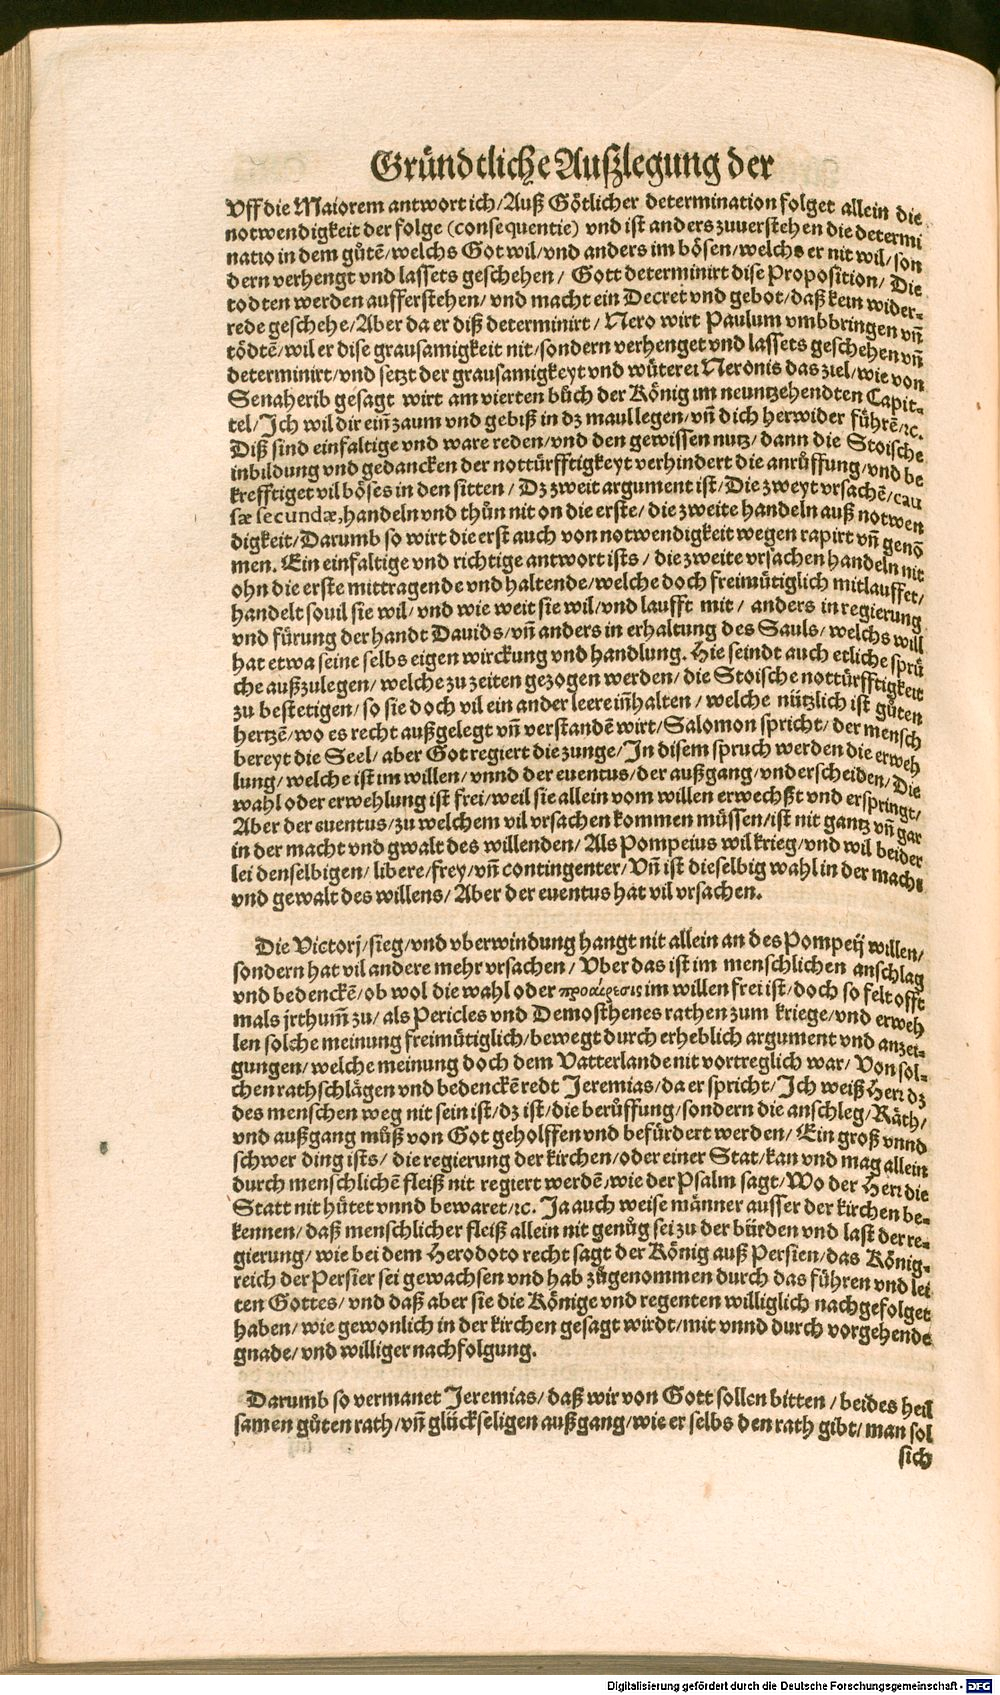 Gründtliche Außlegung der
Vff die Maiorem antwort ich/Auß Götlicher determination folget allein die
notwendigkeit der folge (consequentie) vnd ist anders zuuerstehen die determi
natio in dem gůtẽ/welchs Got wil/vnd anders im bösen/welchs er nit wil/son
dern verhengt vnd lassets geschehen/ Gott determinirt dise Proposition/ Die
todten werden aufferstehen/ vnd macht ein Decret vnd gebot/daß kein wider-
rede geschehe/Aber da er diß determinirt/ Nero wirt Paulum vmbbringen vñ
tödtẽ/wil er dise grausamigkeit nit/sondern verhenget vnd lassets geschehen vñ
determinirt/vnd setzt der grausamigkeyt vnd wüterei Neronis das ziel/wie von
Senaherib gesagt wirt am vierten bůch der König im neuntzehendten Capit-
tel/Ich wil dir eiñ zaum vnd gebiß in dz maul legen/vñ dich herwider führẽ/ꝛc.
Diß sind einfaltige vnd ware reden/vnd den gewissen nutz/ dann die Stoische
inbildung vnd gedancken der nottürfftigkeyt verhindert die anrůffung/vnd be
krefftiget vil böses in den sitten/ Dz zweit argument ist/Die zweyt vrsachẽ/cau
sæ secundæ,handeln vnd thůn nit on die erste/ die zweite handeln auß notwen
digkeit/Darumb so wirt die erst auch von notwendigkeit wegen rapirt vñ genõ
men. Ein einfaltige vnd richtige antwort ists/ die zweite vrsachen handeln nit
ohn die erste mittragende vnd haltende/welche doch freimütiglich mitlauffet/
handelt souil sie wil/ vnd wie weit sie wil/vnd laufft mit/ anders in regierung
vnd fürung der handt Dauids/vñ anders in erhaltung des Sauls/welchs will
hat etwa seine selbs eigen wirckung vnd handlung. Hie seindt auch etliche sprü
che außzulegen/ welche zu zeiten gezogen werden/ die Stoische nottürfftigkeit
zu bestetigen/ so sie doch vil ein ander leere iñhalten/ welche nützlich ist gůten
hertzẽ/wo es recht außgelegt vñ verstandẽ wirt/Salomon spricht/ der mensch
bereyt die Seel/ aber Got regiert die zunge/In disem spruch werden die erweh
lung/ welche ist im willen/ vnnd der euentus/der außgang/vnderscheiden/Die
wahl oder erwehlung ist frei/weil sie allein vom willen erwechßt vnd erspringt/
Aber der euentus/zu welchem vil vrsachen kommen müssen/ist nit gantz vñ gar
in der macht vnd gwalt des willenden/ Als Pompeius wil krieg/vnd wil beider
lei denselbigen/ libere/frey/vñ contingenter/ Vñ ist dieselbig wahl in der macht
vnd gewalt des willens/ Aber der euentus hat vil vrsachen.
Die Victorj/sieg/vnd vberwindung hangt nit allein an des Pompeij willen/
sondern hat vil andere mehr vrsachen/ Vber das ist im menschlichen anschlag
vnd bedenckẽ/ob wol die wahl oder προαίρεσις im willen frei ist/doch so felt offt
mals jrthum̃ zu/ als Pericles vnd Demosthenes rathen zum kriege/vnd erweh
len solche meinung freimütiglich/bewegt durch erheblich argument vnd anzei-
gungen/welche meinung doch dem Vatterlande nit vortreglich war/ Von sol-
chen rathschlägen vnd bedenckẽ redt Jeremias/da er spricht/Ich weiß Herr dz
des menschen weg nit sein ist/dz ist/die berůffung/sondern die anschleg/Räth/
vnd außgang můß von Got geholffen vnd befürdert werden/ Ein groß vnnd
schwer ding ists/ die regierung der kirchen/oder einer Stat/kan vnd mag allein
durch menschlichẽ fleiß nit regiert werdẽ/wie der Psalm sagt/Wo der Herr die
Statt nit hütet vnnd bewaret/ꝛc. Ja auch weise männer ausser der kirchen be-
kennen/ daß menschlicher fleiß allein nit genůg sei zu der bürden vnd last der re-
gierung/ wie bei dem Herodoto recht sagt der König auß Persien/das König-
reich der Persier sei gewachsen vnd hab zůgenommen durch das führen vnd lei
ten Gottes/ vnd daß aber sie die Könige vnd regenten williglich nachgefolget
haben/ wie gewonlich in der kirchen gesagt wirdt/mit vnnd durch vorgehende
gnade/ vnd williger nachfolgung.
Darumb so vermanet Jeremias/ daß wir von Gott sollen bitten/ beides heil
samen gůten rath/vñ glückseligen außgang/wie er selbs den rath gibt/ man sol
sich
Digitalisierung gefördert durch die Deutsche Forschungsgemeinschaft - DFG